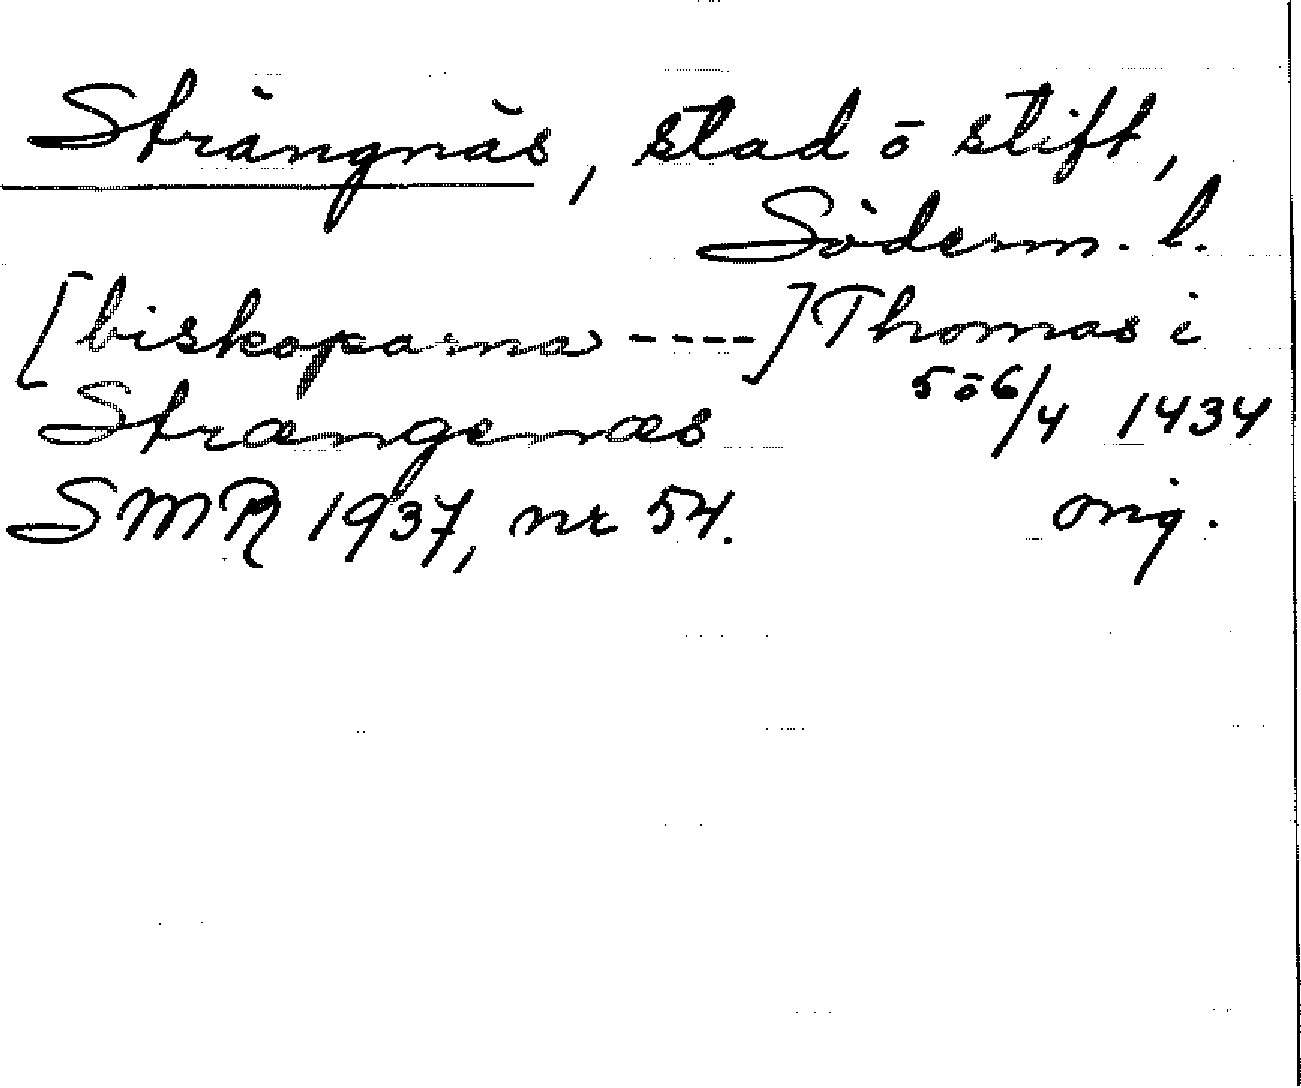 Strängnäs, stad ō stift,
Söderm. l.
[biskoparna ----] Thomas i
Strængenæs 5 ō 6/4 1434
SMR 1937, nr 54. orig.